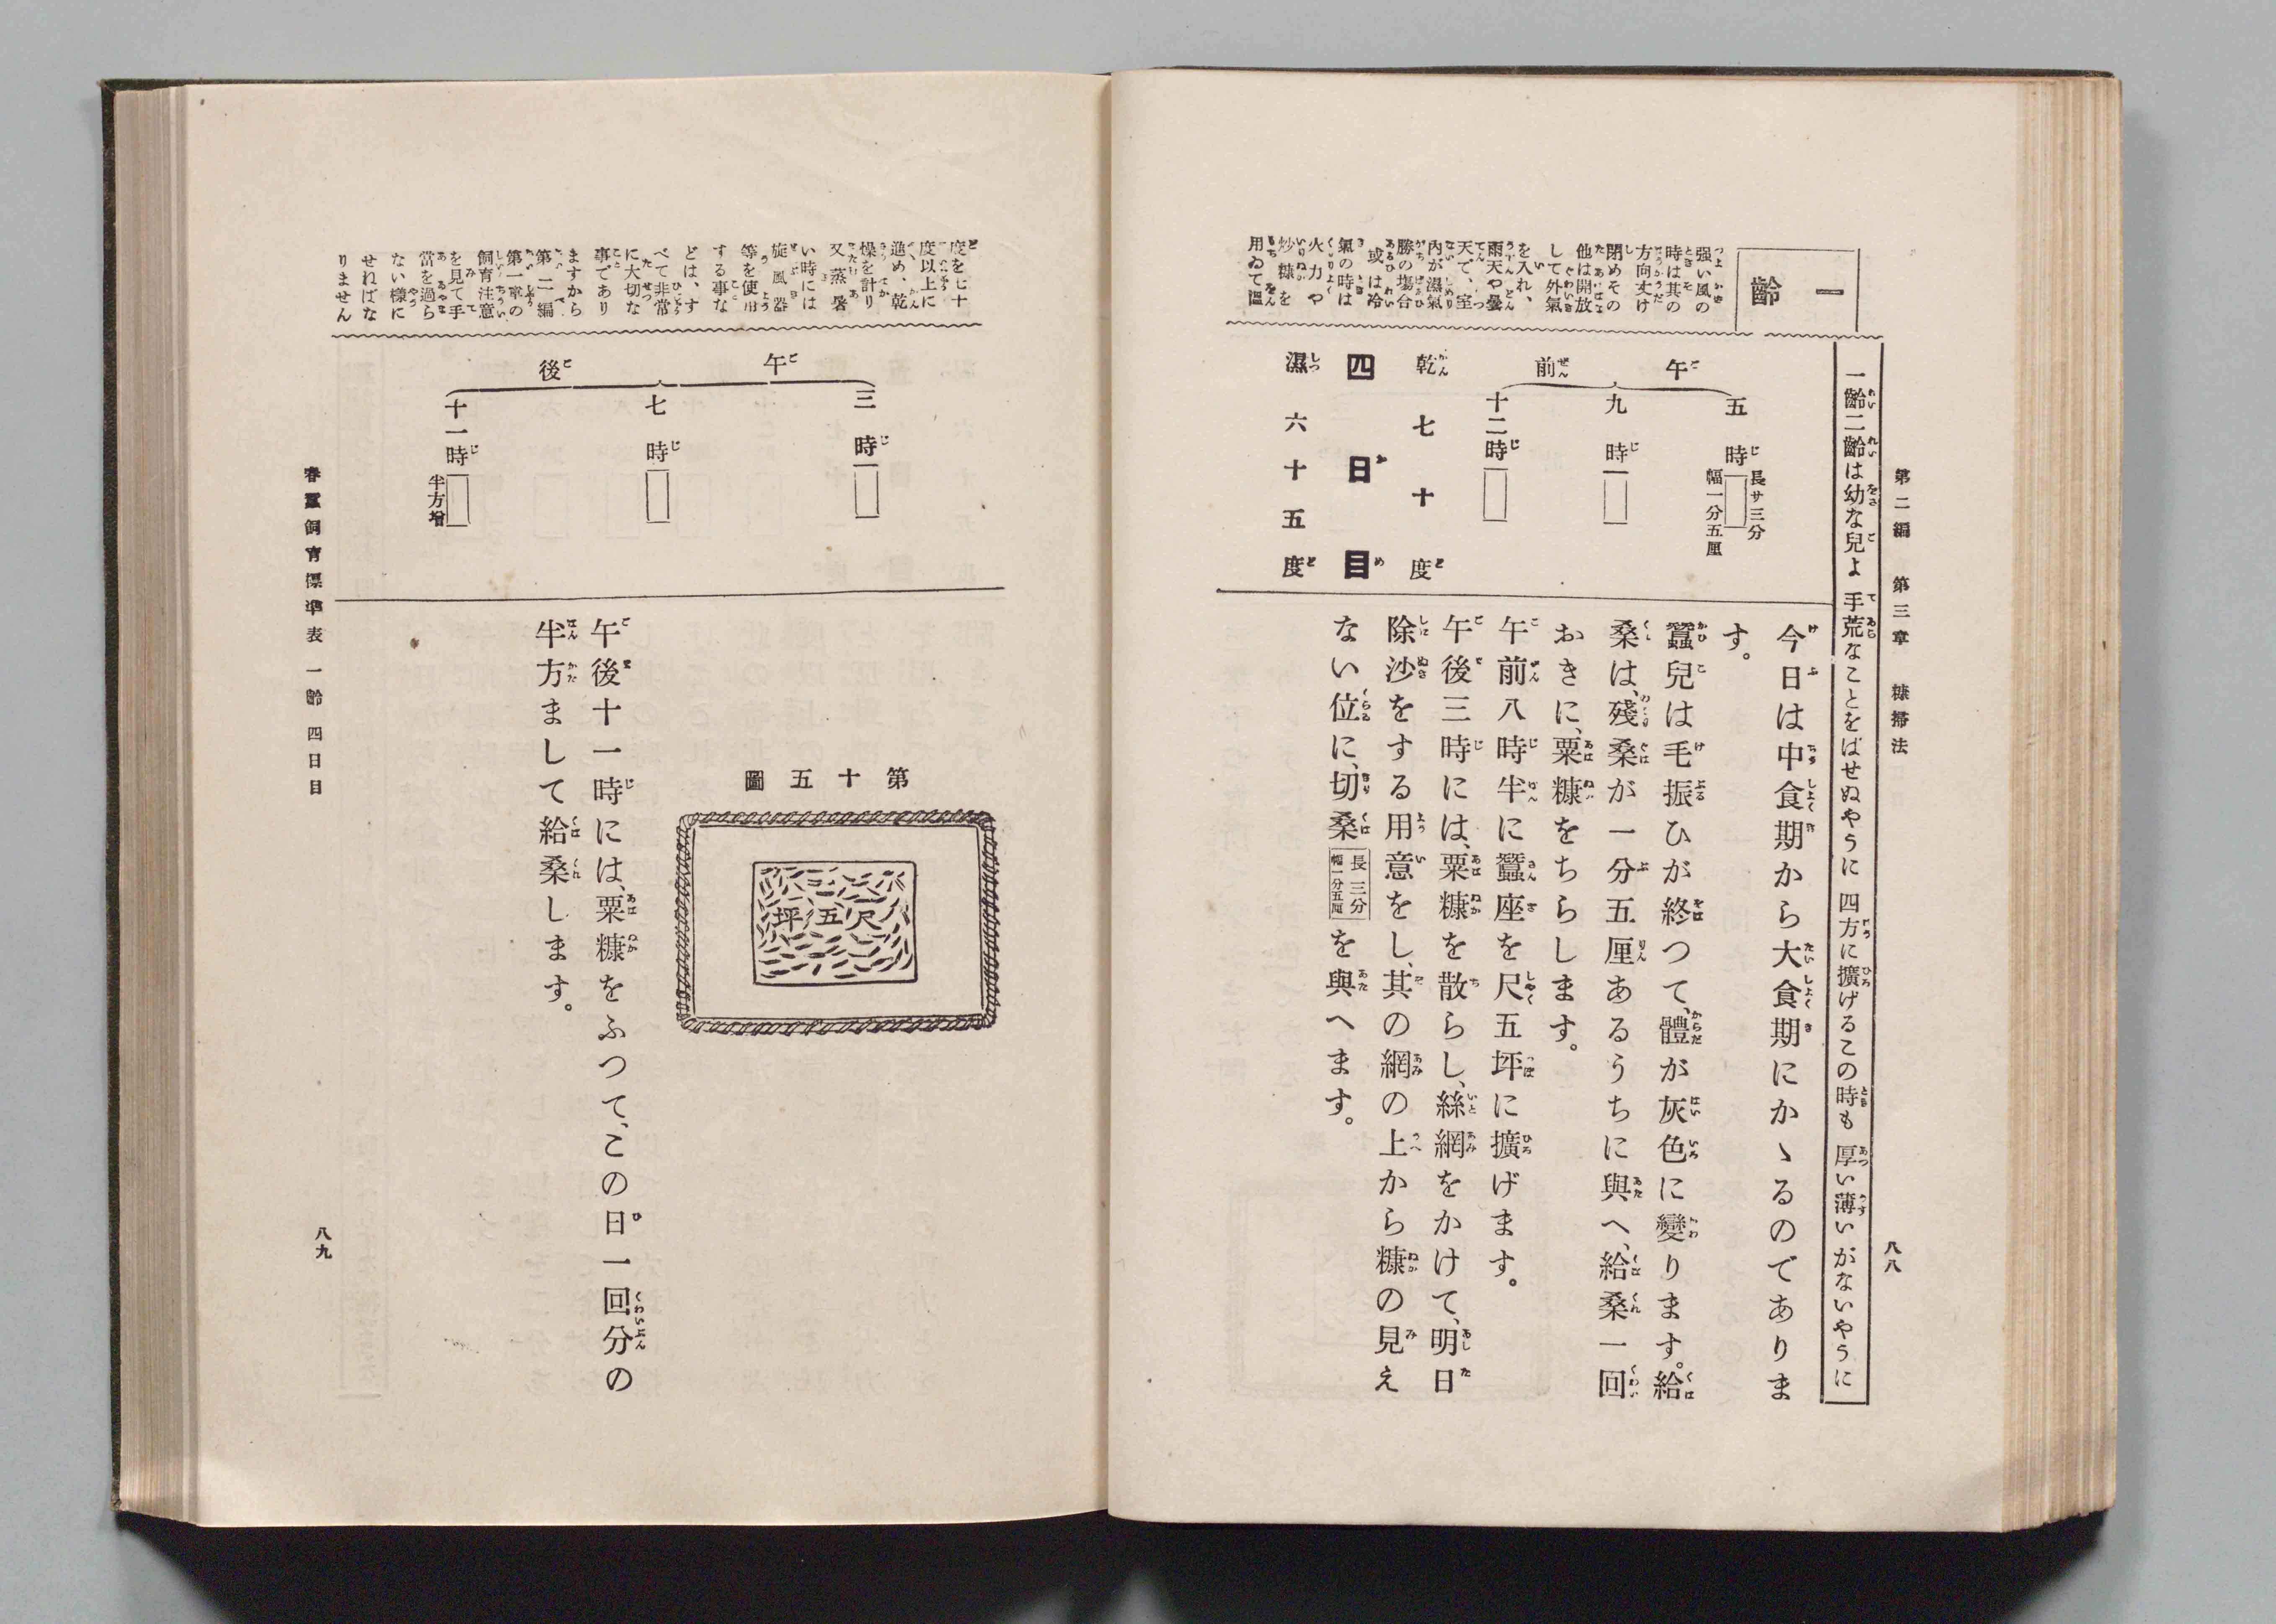 第二編　第三章　糠掃法
八八
一齡
一齡二齡は幼な兒よ 手荒なことをばせぬやうに 四方に擴げるこの時も 厚い薄いがないやうに
强い風の
時は其の
方向丈け
閉めその
他は開放
して外氣
を入れ、
雨天や曇
天で、室
內が濕氣
勝の場合
或は冷
氣の時は
火力や
炒糠を
用ゐて溫
午前
五時 長サ三分 幅一分五厘
九時
十二時
乾 七十度
四日目
濕 六十五度
今日は中食期から大食期にかゝるのでありま
す。
蠶兒は毛振ひが終つて、體が灰色に變ります。給
桑は、殘桑が一分五厘あるうちに與へ、給桑一回
おきに、粟糠をちらします。
午前八時半に蠶座を尺五坪に擴げます。
午後三時には、粟糠を散らし、絲網をかけて、明日
除沙をする用意をし、其の網の上から糠の見え
ない位に、切桑長三分幅一分五厘を與へます。
度を七十
度以上に
進め、乾
燥を計り
又蒸暑
い時には
旋風器
等を使用
する事な
どは、す
べて非常
に大切な
事であり
ますから
第二編
第一章の
飼育注意
を見て手
當を過ら
ない樣に
せねばな
りません
午後
三時
七時
十一時 半方增
第十五圖
尺五坪
午後十一時には、粟糠をふつて、この日一回分の
半方まして給桑します。
春蠶飼育標準表 一齡 四日目
八九